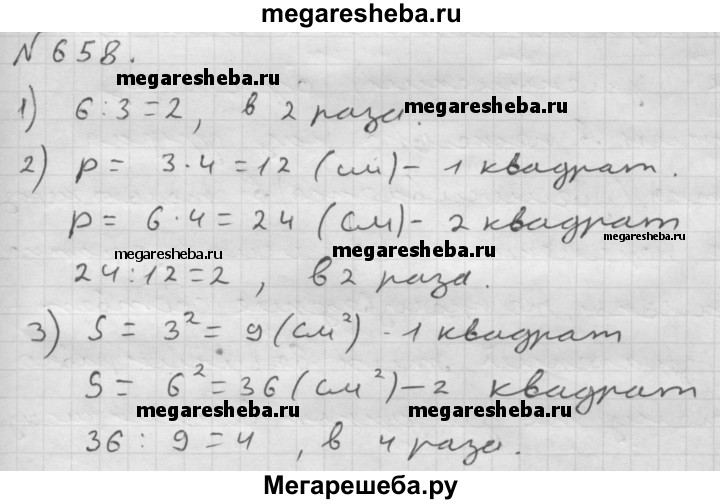 megaresheba.ru
№ 658.
megaresheba.ru
1) 6 : 3 = 2, в 2 раза.
megaresheba.ru
2) p = 3 · 4 = 12 (см) – 1 квадрат.
p = 6 · 4 = 24 (см) – 2 квадрат
megaresheba.ru
megaresheba.ru
megaresheba.ru
24 : 12 = 2, в 2 раза.
3) S = 3² = 9 (см²) - 1 квадрат
S = 6² = 36 (см²) – 2 квадрат
megaresheba.ru
megaresheba.ru
36 : 9 = 4, в 4 раза.
Мегарешеба.ру